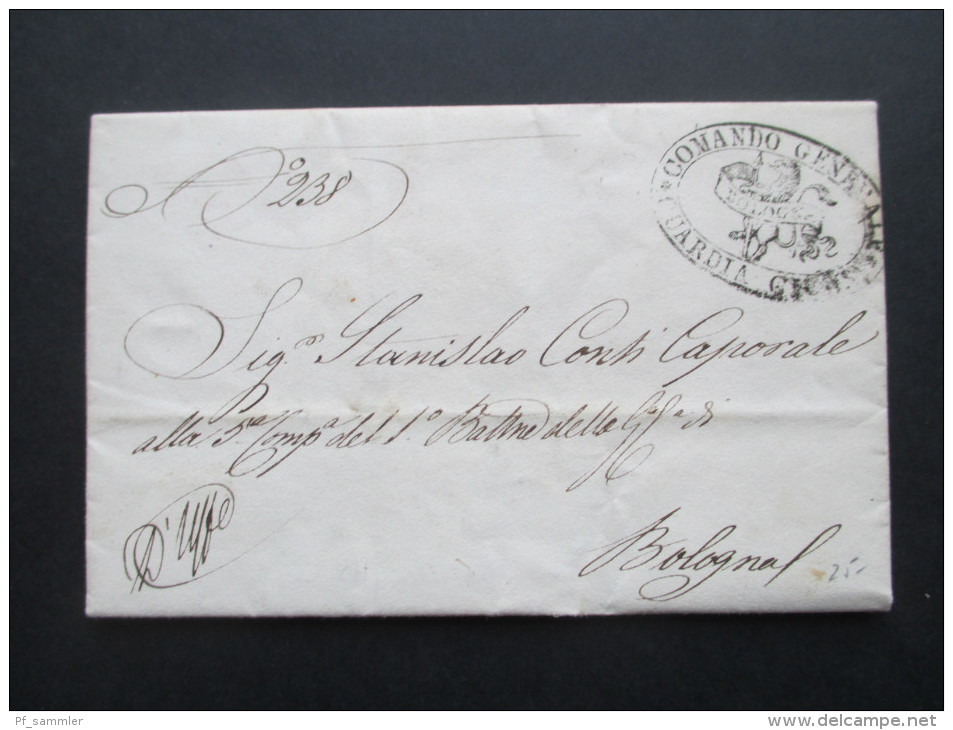 N.o 238
COMANDO GENERALE
BOLOGNA
GUARDIA CIVICA
Sig.o Stanislao Conti Caporale
alla 5.a Comp.a del 1.o Battne della G.a C.a di
Bologna
D'Uffo
25-
Pf_sammler
http://www.delcampe.net